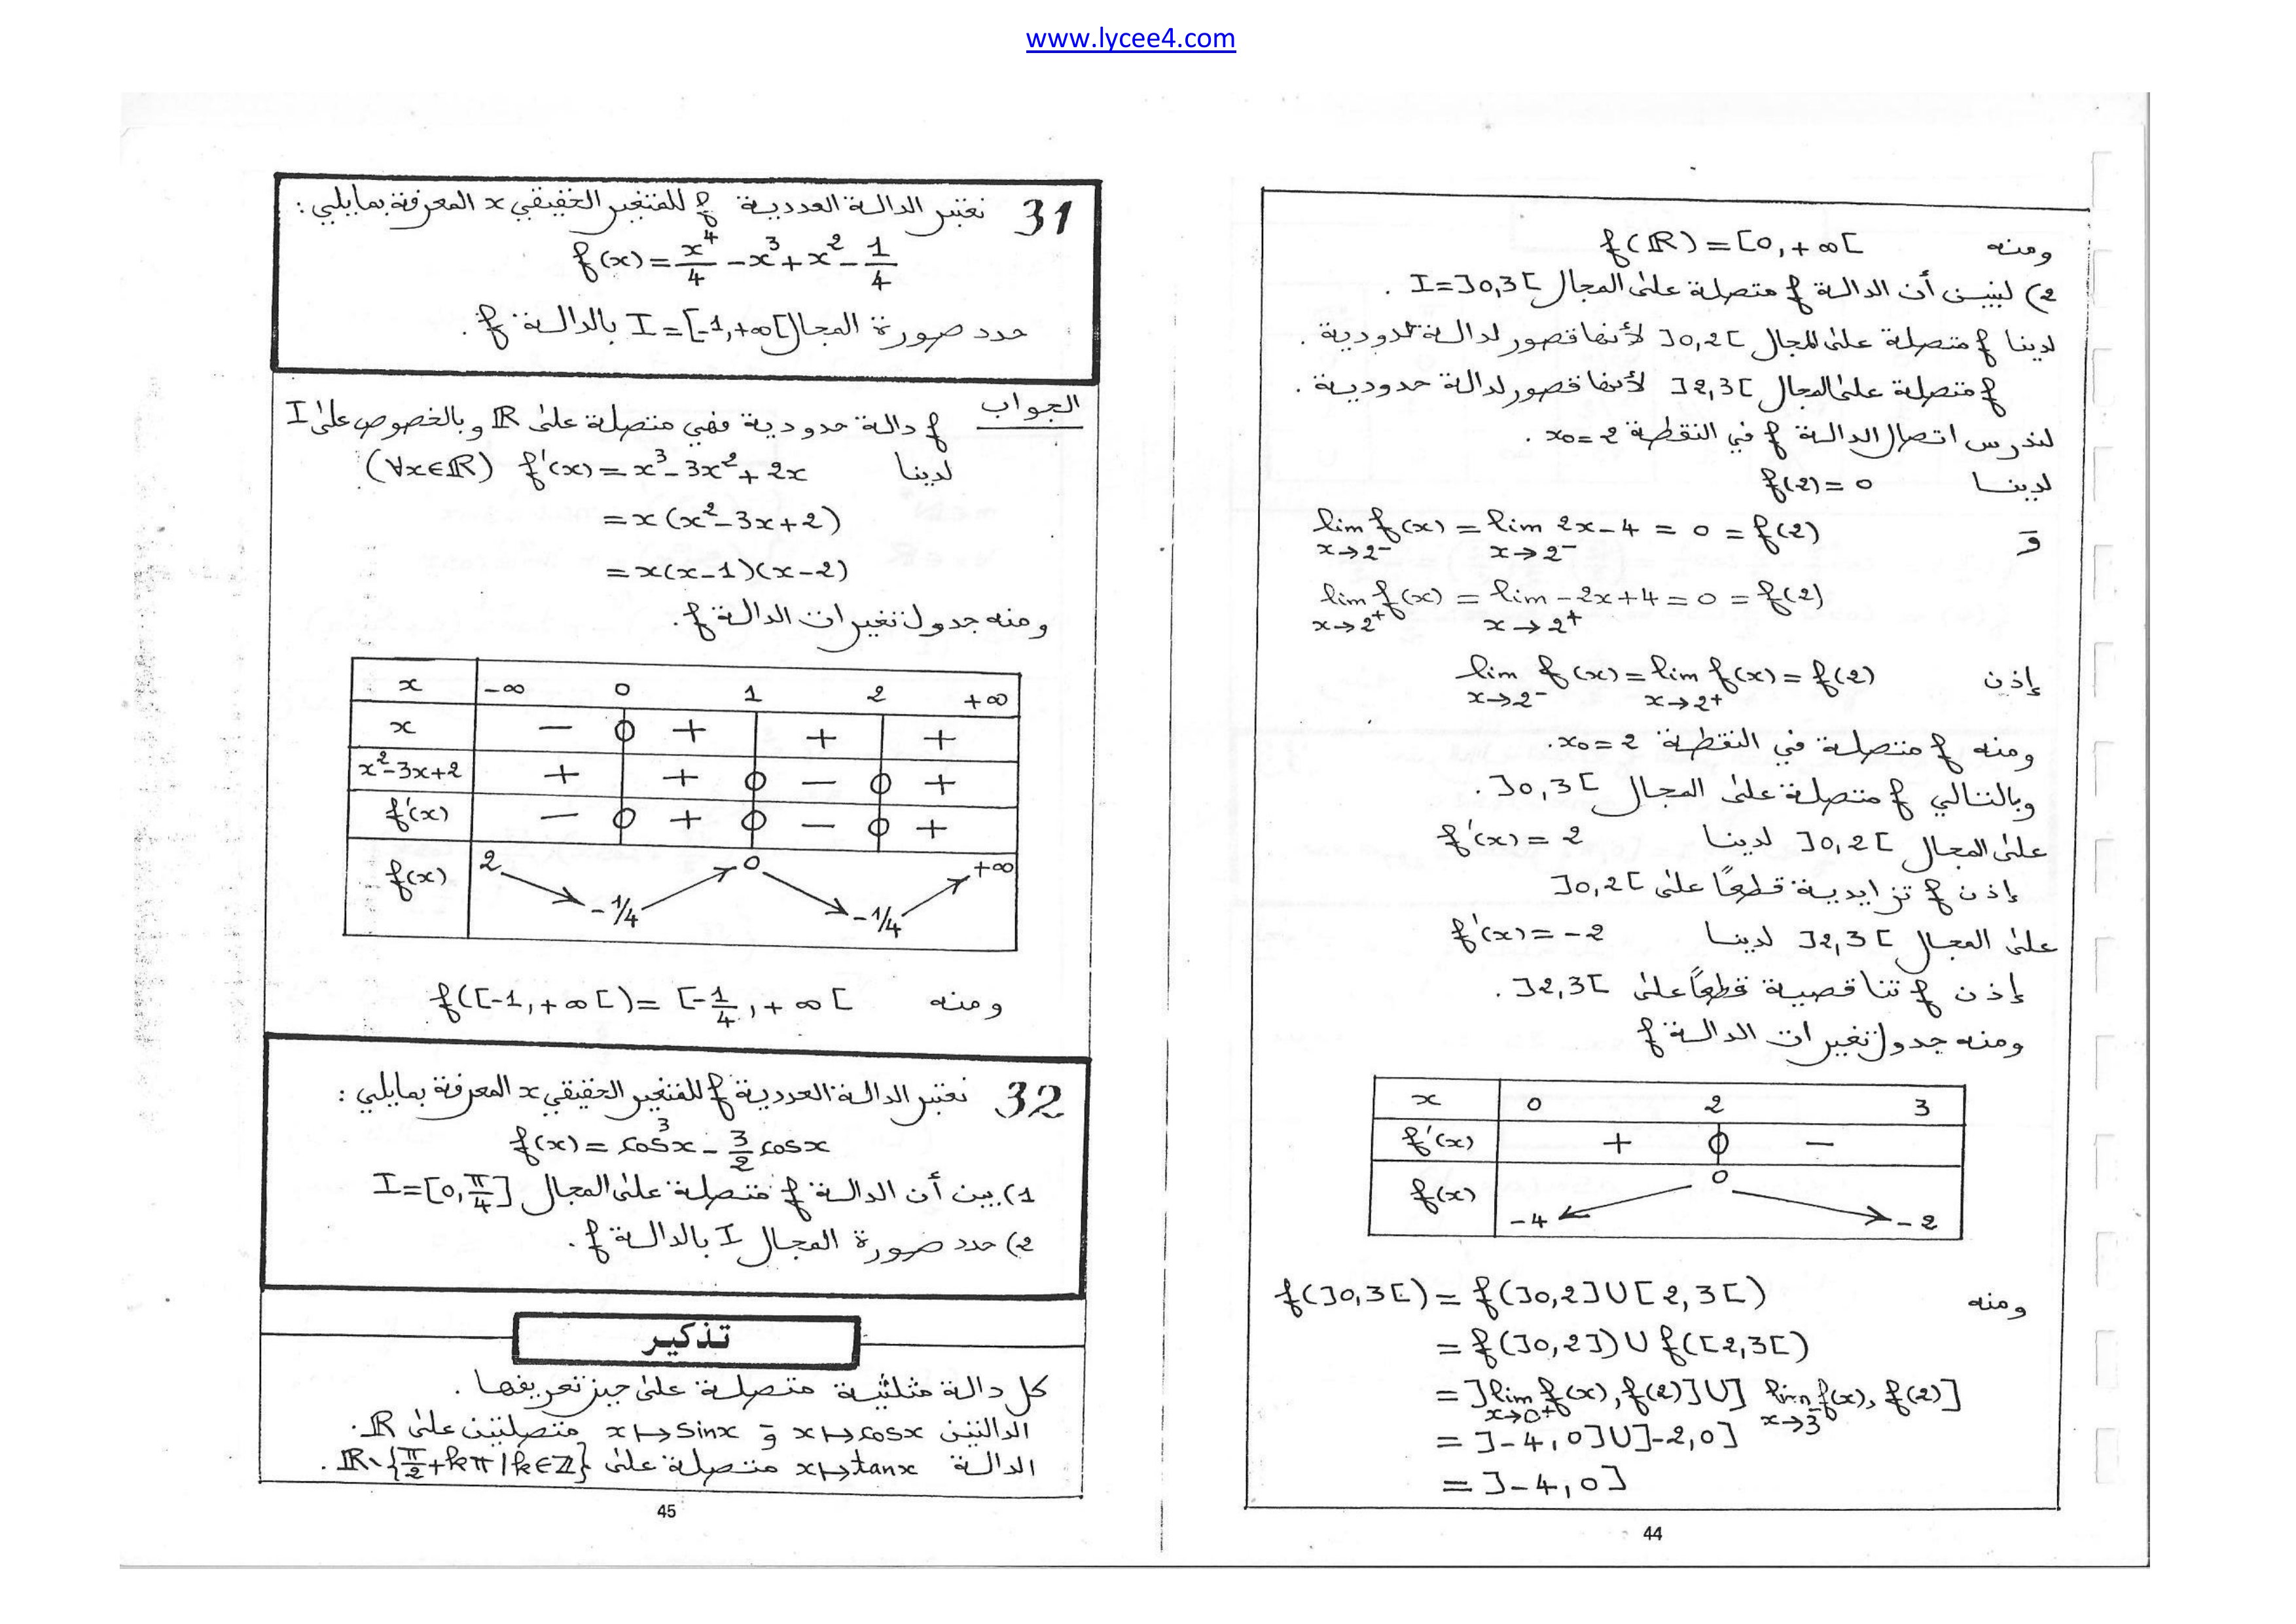 www.lycee4.com
ومنه f(ℝ) = [0, +∞[
2) لنبين أن الدالة f متصلة على المجال I = ]0,3[ .
لدينا f متصلة على المجال ]0,2[ لأنها قصور لدالة حدودية .
f متصلة على المجال ]2,3[ لأنها قصور لدالة حدودية .
لندرس اتصال الدالة f في النقطة x₀ = 2 .
لدينا f(2) = 0
و lim_{x→2⁻} f(x) = lim_{x→2⁻} 2x-4 = 0 = f(2)
lim_{x→2⁺} f(x) = lim_{x→2⁺} -2x+4 = 0 = f(2)
إذن lim_{x→2⁻} f(x) = lim_{x→2⁺} f(x) = f(2)
ومنه f متصلة في النقطة x₀ = 2.
وبالتالي f متصلة على المجال ]0,3[ .
على المجال ]0,2[ لدينا f'(x) = 2
إذن f تزايدية قطعًا على ]0,2[
على المجال ]2,3[ لدينا f'(x) = -2
إذن f تناقصية قطعًا على ]2,3[ .
ومنه جدول تغيرات الدالة f
x 0 2 3
f'(x) + 0 -
f(x) -4 0 -2
ومنه f(]0,3[) = f(]0,2] ∪ [2,3[)
= f(]0,2]) ∪ f([2,3[)
= ]lim_{x→0⁺} f(x), f(2)] ∪ ] lim_{x→3⁻} f(x), f(2)]
= ]-4,0] ∪ ]-2,0]
= ]-4,0]
44
31 نعتبر الدالة العددية f للمتغير الحقيقي x المعرفة بمايلي :
f(x) = x⁴/4 - x³ + x² - 1/4
حدد صورة المجال I = [-1,+∞[ بالدالة f .
الجواب f دالة حدودية فهي متصلة على ℝ وبالخصوص على I
لدينا (∀x∈ℝ) f'(x) = x³ - 3x² + 2x
= x(x² - 3x + 2)
= x(x-1)(x-2)
ومنه جدول تغيرات الدالة f .
x -∞ 0 1 2 +∞
x - 0 + + +
x²-3x+2 + + 0 - 0 +
f'(x) - 0 + 0 - 0 +
f(x) 2 -1/4 0 -1/4 +∞
ومنه f([-1,+∞[) = [-1/4, +∞[
32 نعتبر الدالة العددية f للمتغير الحقيقي x المعرفة بمايلي :
f(x) = cos³x - 3/2 cosx
1) بين أن الدالة f متصلة على المجال I = [0, π/4]
2) حدد صورة المجال I بالدالة f .
تذكير
كل دالة مثلثية متصلة على حيز تعريفها .
الدالتين x↦cosx و x↦sinx متصلتين على ℝ .
الدالة x↦tanx متصلة على ℝ∖{π/2 + kπ / k∈ℤ} .
45